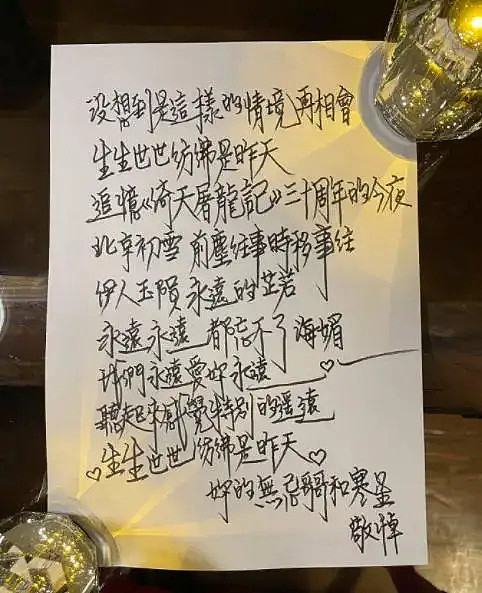 沒想到是這樣的情境再相會
生生世世彷彿是昨天
追憶《倚天屠龍記》三十周年的今夜
北京初雪 前塵往事時移事往
伊人玉隕 永遠的芷若
永遠永遠 都忘不了海媚
我們永遠愛妳永遠
聽起來感覺特別的遥遠
生生世世彷彿是昨天
妳的無忌哥哥和寒星
敬悼